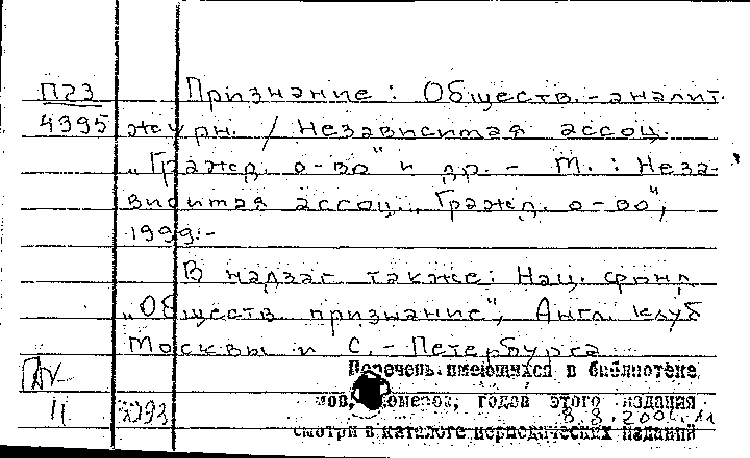 П23 Признание: Обществ.-аналит.
4995 журн. / Независимая ассоц.
„Гражд. о-во" и др. - М.: Неза-
висимая ассоц. „Гражд. о-во",
1999.-
В надзаг. также: Нац. фонд
„Обществ. признание", Англ. клуб
Москвы и С.-Петербурга
Перечень имеющихся в библиотеке
номеров, годов этого издания
смотри в каталоге периодических изданий